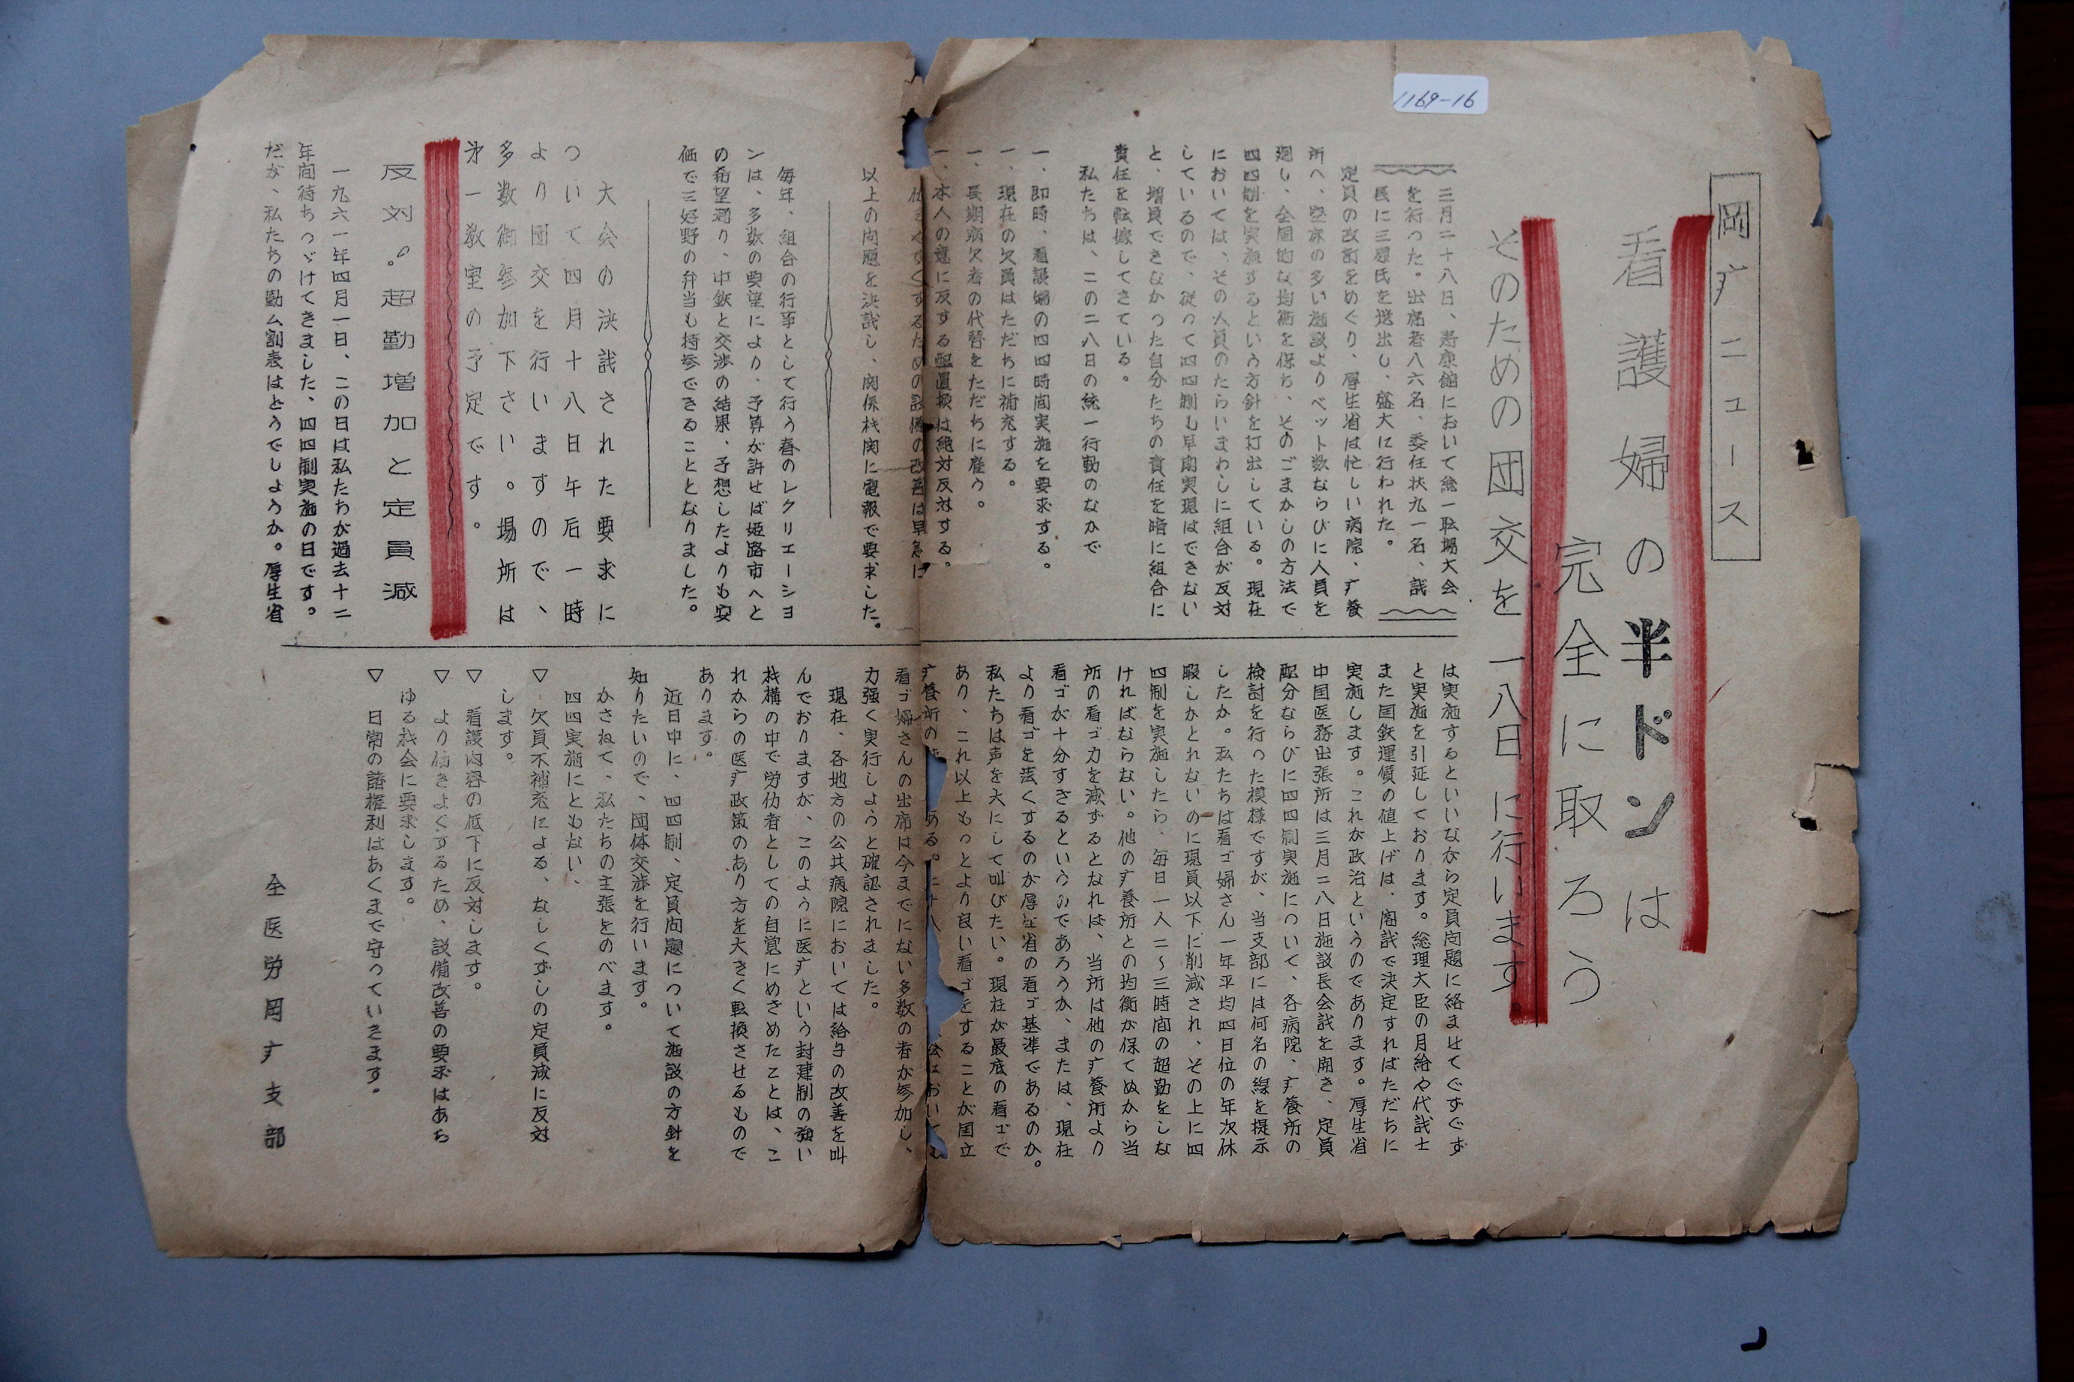 1169-16
岡疒ニュース
看護婦の半ドンは
完全に取ろう
そのための団交を一八日に行います
三月二十八日、寿康舘において統一職場大会
を行った。出席者八六名、委任状九一名、議
長に三原氏を選出し、盛大に行われた。
定員の改訂をめぐり、厚生省は忙しい病院、疒養
所へ、空床の多い施設よりベット数ならびに人員を
廻し、全国的な均衡を保ち、そのごまかしの方法で
四四制を実施するという方針を打出している。現在
においては、その人員のたらいまわしに組合が反対
しているので、従って四四制も早期実現はできない
と、増員できなかった自分たちの責任を暗に組合に
責任を転嫁してきている。
私たちは、この二八日の統一行動のなかで
一、即時、看護婦の四四時間実施を要求する。
一、現在の欠員はただちに補充する。
一、長期病欠者の代替をただちに雇う。
一、本人の意に反する配置換は絶対反対する。
仂きやすくするための設備の改善は早急に
以上の问題を決議し、関係機関に電報で要求した。
毎年、組合の行事として行う春のレクリエーショ
ンは、多数の要望により、予算が許せば姫路市へと
の希望通り、中鉄と交渉の結果、予想したよりも安
価で三好野の弁当も持参できることとなりました。
大会の決議された要求に
ついて四月十八日午后一時
より団交を行いますので、
多数御参加下さい。場所は
㐧一教室の予定です。
反対。超勤増加と定員減
一九六一年四月一日、この日は私たちが過去十二
年间待ちつづけてきました、四四制実施の日です。
だが、私たちの勤ム割表はどうでしようか。厚生省
は実施するといいながら定員问題に絡ませてぐずぐず
と実施を引延しております。総理大臣の月給や代議士
また国鉄運債の値上げは、閣議で決定すればただちに
実施します。これが政治というのであります。厚生省
中国医務出張所は三月二八日施設長会議を開き、定員
配分ならびに四四制実施について、各病院、疒養所の
検討を行った模様ですが、当支部には何名の線を提示
したか。私たちは看ゴ婦さん一年平均四日位の年次休
暇しかとれないのに現員以下に削減され、その上に四
四制を実施したら、毎日一人二〜三時間の超勤をしな
ければならない。他の疒養所との均衡が保てぬから当
所の看ゴ力を減ずるとなれば、当所は他の疒養所より
看ゴが十分すぎるというのであろうか、または、現在
より看ゴを悪くするのが厚生省の看ゴ基準であるのか。
私たちは声を大にして叫びたい。現在が最底の看ゴで
あり、これ以上もっとより良い看ゴをすることが国立
疒養所の ある。二十八 会において も
看ゴ婦さんの出席は今までにない多数の者が参加し、
力強く実行しようと確認されました。
現在、各地方の公共病院においては給与の改善を叫
んでおりますが、このように医疒という封建制の強い
機構の中で労仂者としての自覚にめざめたことは、こ
れからの医疒政策のあり方を大きく転換させるもので
あります。
近日中に、四四制、定員问題について施設の方針を
知りたいので、団体交渉を行います。
かさねて、私たちの主張をのべます。
四四実施にともない、
▽ 欠員不補充による、なしくずしの定員減に反対
します。
▽ 看護内容の低下に反対します。
▽ より仂きよくするため、設備改善の要求はあら
ゆる機会に要求します。
▽ 日常の諸権利はあくまで守っていきます。
全医労岡疒支部